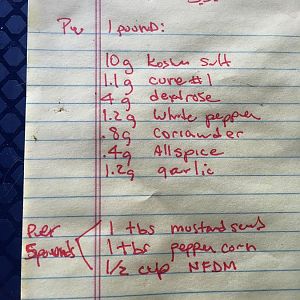 Per 1 pound:
10g kosher salt
1.1g cure #1
4g dextrose
1.2g white pepper
.8g coriander
.4g Allspice
1.2g garlic
Per 5 pounds
1 tbs mustard seed
1 tbs peppercorn
1/2 cup NFDM